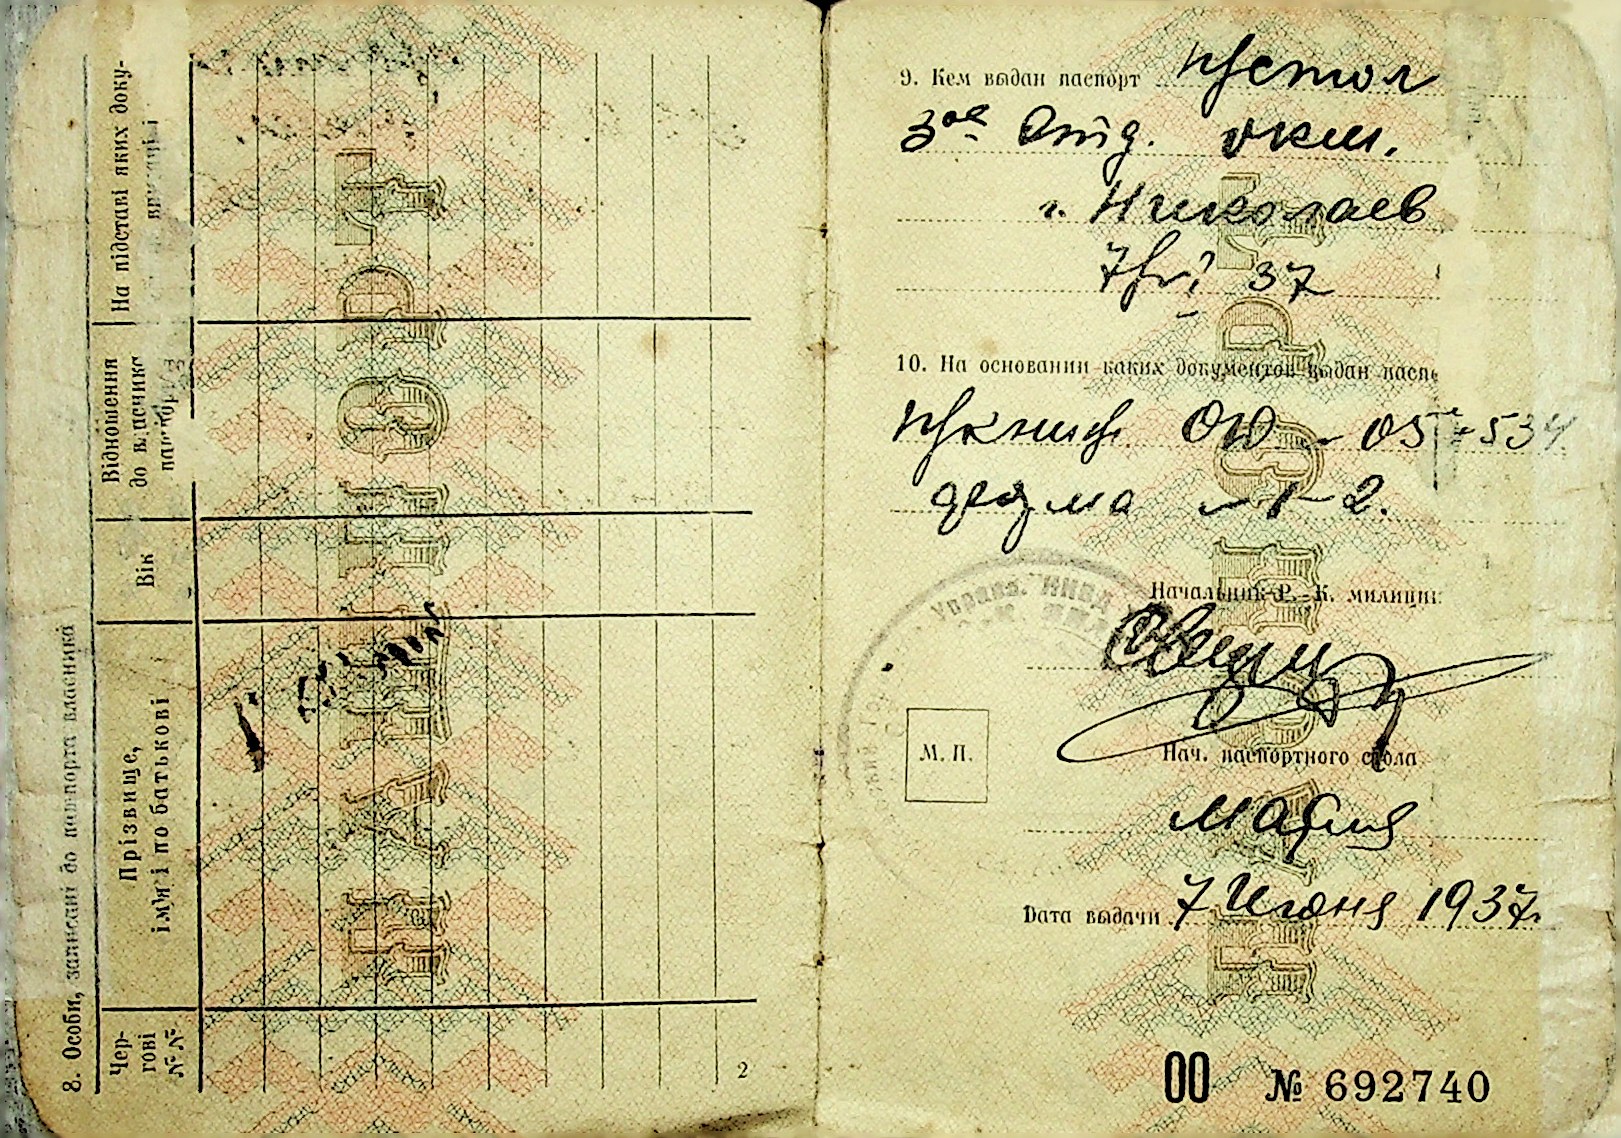 8. Особи, записані до паспорта власника
Чер-
гові
№№
Прізвище,
ім'я і по батькові
Вік
Відношення
до власника
паспорта
На підставі яких доку-
2
ПАСПОРТ
9. Кем выдан паспорт
3ое Отд. окм.
г. Николаев
37
10. На основании каких документов выдан
05 534
форма 1-2.
Управ. НКВД
Начальник Р.-К. милиции
М. П.
Нач. паспортного стола
Дата выдачи 7 Июня 1937г.
ПАСПОРТ
00 № 692740